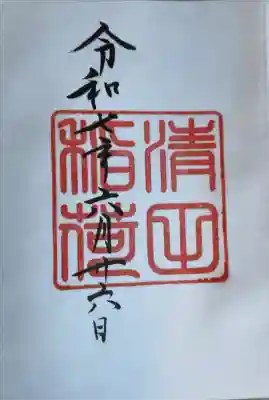 清田
稲荷
令和七年六月廿六日